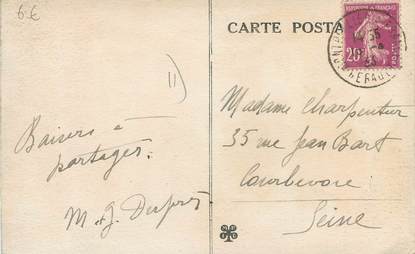 6 €
11)
Baisers à
partager.
M. J.
CARTE POSTA
REPUBLIQUE FRANÇAISE
20
Madame Charpentier
35 rue Jean Bart
Courbevoie
Seine